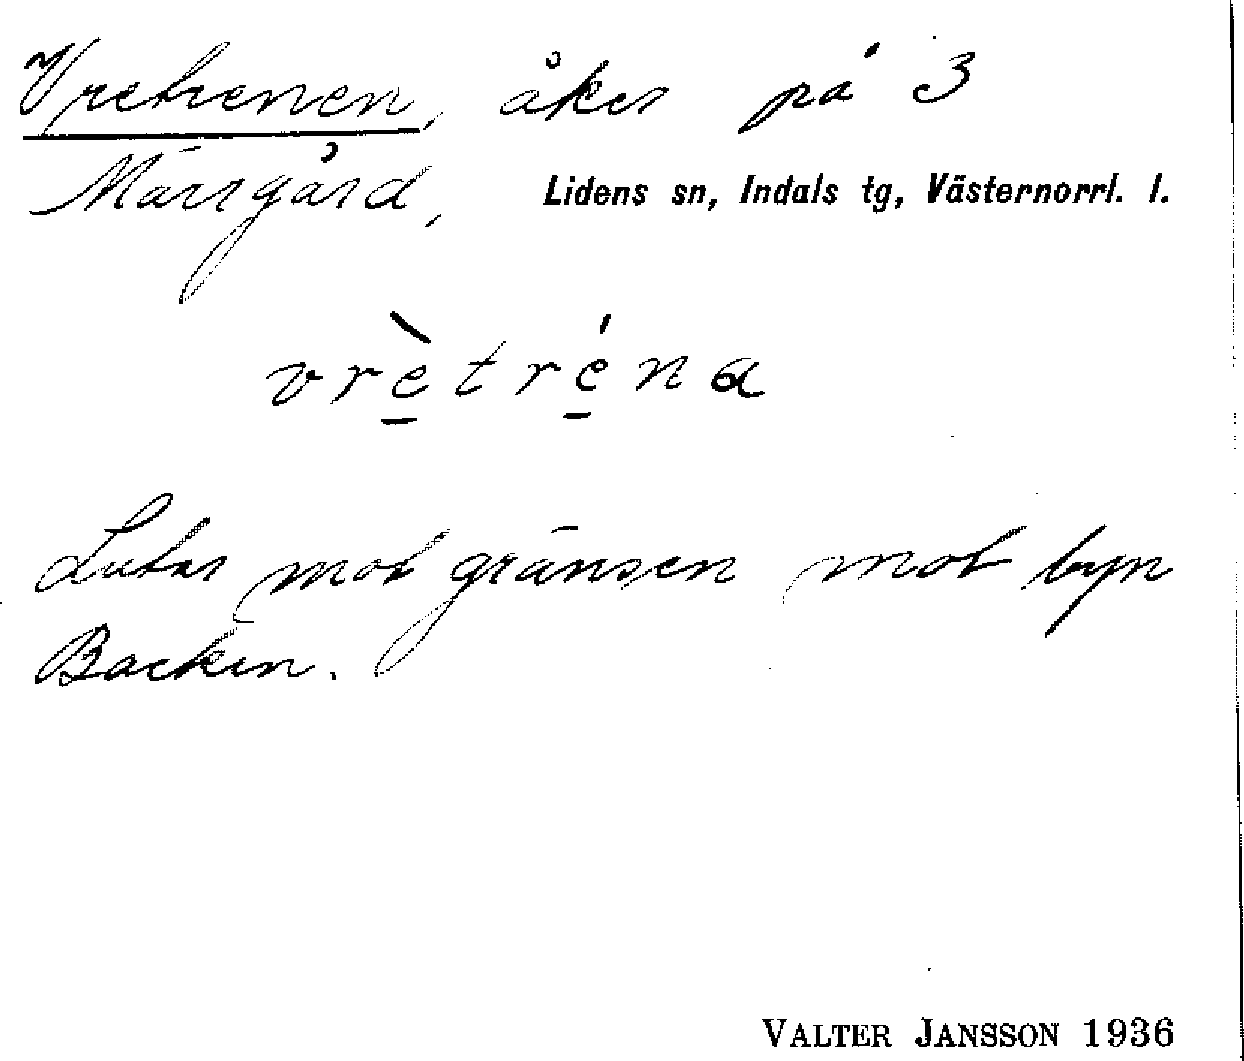 Vretrenen, åker på 3
Märrgård, Lidens sn, Indals tg, Västernorrl. l.
vrètréna
Lutar mot gränsen mot byn
Backen.
VALTER JANSSON 1936